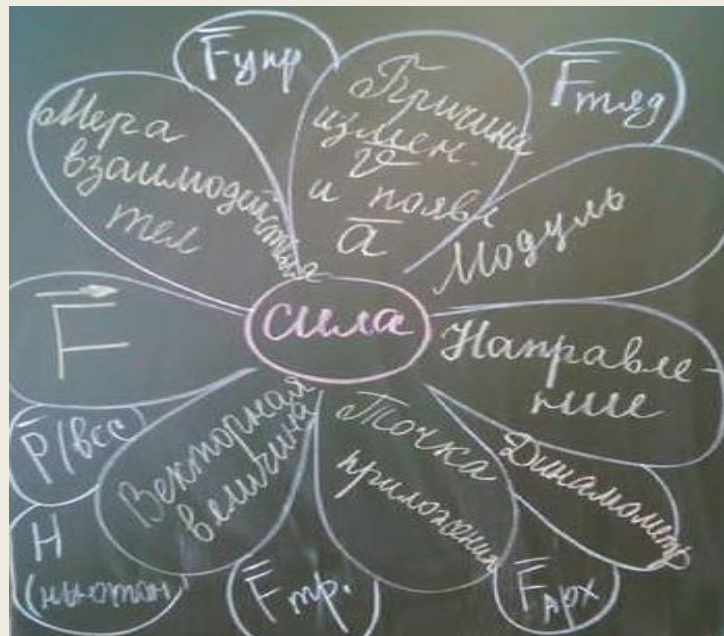 F̅упр
Причина
измен.
v̅
и появл
a̅
F̅тяд
Мера
взаимодействия
тел
Модуль
F⃗
сила
Направле-
ние
P̅(вес
Векторная
величина
Точка
приложения
Динамометр
Н
(ньютон
F̅тр.
F̅Арх